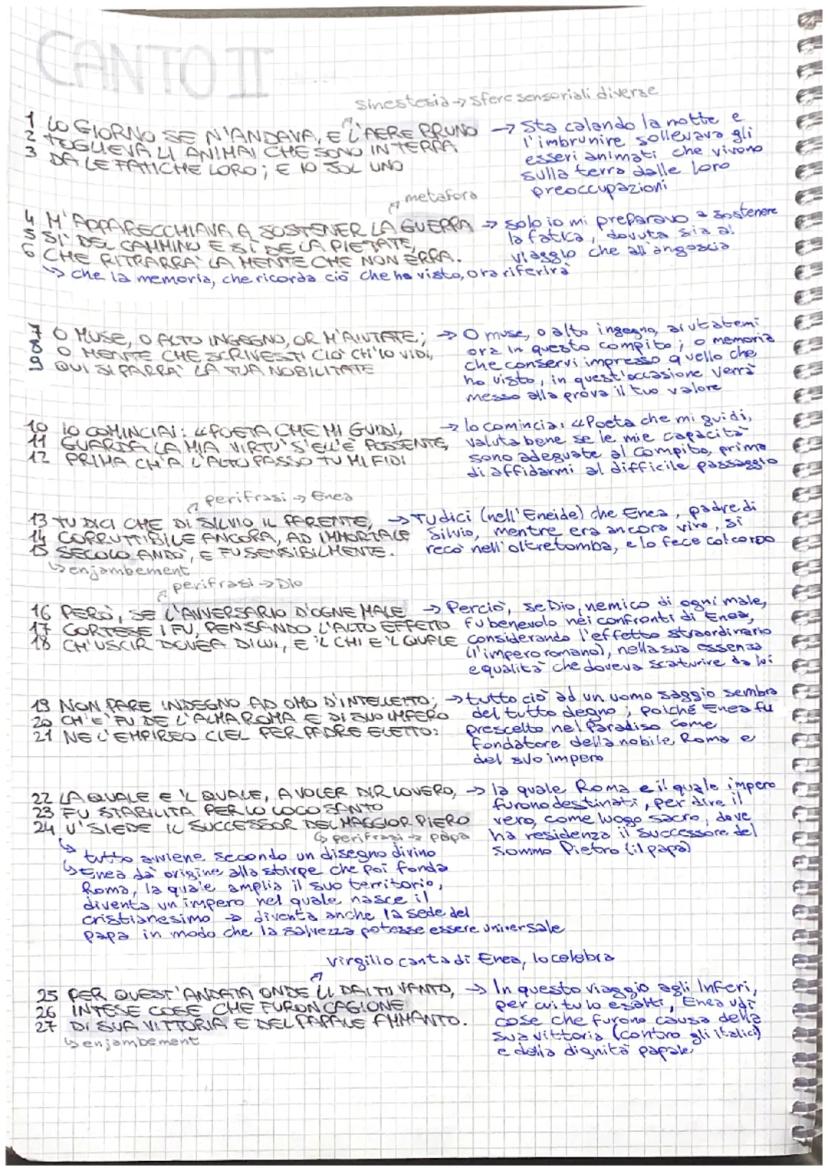 CANTO II
sinestesia → sfere sensoriali diverse
1 LO GIORNO SE N'ANDAVA, E L'AERE BRUNO → Sta calando la notte e
2 TOGLIEVA LI ANIMAI CHE SONO IN TERRA l'imbrunire sollevava gli
3 DA LE FATICHE LORO; E IO SOL UNO esseri animati che vivono
sulla terra dalle loro
preoccupazioni
metafora
4 M'APPARECCHIAVA A SOSTENER LA GUERRA → solo io mi preparavo a sostenere
5 SÌ DEL CAMMINO E SÌ DE LA PIETATE, la fatica, dovuta sia al
6 CHE RITRARRÀ LA MENTE CHE NON ERRA. viaggio che all'angoscia
↳ che la memoria, che ricorda ciò che ha visto, ora riferirà
7 O MUSE, O ALTO INGEGNO, OR M'AIUTATE; → O muse, o alto ingegno, aiutatemi
8 O MENTE CHE SCRIVESTI CIÒ CH'IO VIDI, ora in questo compito; o memoria
9 QUI SI PARRÀ LA TUA NOBILITATE che conservi impresso quello che
ho visto, in quest'occasione verrà
messo alla prova il tuo valore
10 IO COMINCIAI: «POETA CHE MI GUIDI, → Io cominciai «Poeta che mi guidi,
11 GUARDA LA MIA VIRTÙ S'ELL'È POSSENTE, valuta bene se le mie capacità
12 PRIMA CH'A L'ALTO PASSO TU MI FIDI sono adeguate al compito, prima
di affidarmi al difficile passaggio
perifrasi → Enea
13 TU DICI CHE DI SILVIO IL PARENTE, → Tu dici (nell'Eneide) che Enea, padre di
14 CORRUTTIBILE ANCORA, AD IMMORTALE Silvio, mentre era ancora vivo, si
15 SECOLO ANDÒ, E FU SENSIBILMENTE. recò nell'oltretomba, e lo fece col corpo
↳ enjambement
perifrasi → Dio
16 PERÒ, SE L'AVVERSARIO D'OGNE MALE → Perciò, se Dio, nemico di ogni male,
17 CORTESE I FU, PENSANDO L'ALTO EFFETTO fu benevolo nei confronti di Enea,
18 CH'USCIR DOVEA DI LUI, E 'L CHI E 'L QUALE considerando l'effetto straordinario
(l'impero romano), nella sua essenza
e qualità che doveva scaturire da lui
19 NON PARE INDEGNO AD OMO D'INTELLETTO; → tutto ciò ad un uomo saggio sembra
20 CH'E' FU DE L'ALMA ROMA E DI SUO IMPERO del tutto degno; poiché Enea fu
21 NE L'EMPIREO CIEL PER PADRE ELETTO: prescelto nel Paradiso come
fondatore della nobile Roma e
del suo impero
22 LA QUALE E 'L QUALE, A VOLER DIR LO VERO, → la quale Roma e il quale impero
23 FU STABILITA PER LO LOCO SANTO furono destinati, per dire il
24 U' SIEDE IL SUCCESSOR DEL MAGGIOR PIERO vero, come luogo sacro, dove
↳ perifrasi → papa ha residenza il successore del
↳ tutto avviene secondo un disegno divino sommo Pietro (il papa)
↳ Enea dà origine alla stirpe che poi fonda
Roma, la quale amplia il suo territorio,
diventa un impero nel quale nasce il
cristianesimo → diventa anche la sede del
papa in modo che la salvezza potesse essere universale
Virgilio canta di Enea, lo celebra
25 PER QUEST'ANDATA ONDE LI DAI TU VANTO, → In questo viaggio agli Inferi,
26 INTESE COSE CHE FURON CAGIONE per cui tu lo esalti, Enea udì
27 DI SUA VITTORIA E DEL PAPALE AMMANTO. cose che furono causa della
↳ enjambement sua vittoria (contro gli italici)
e della dignità papale